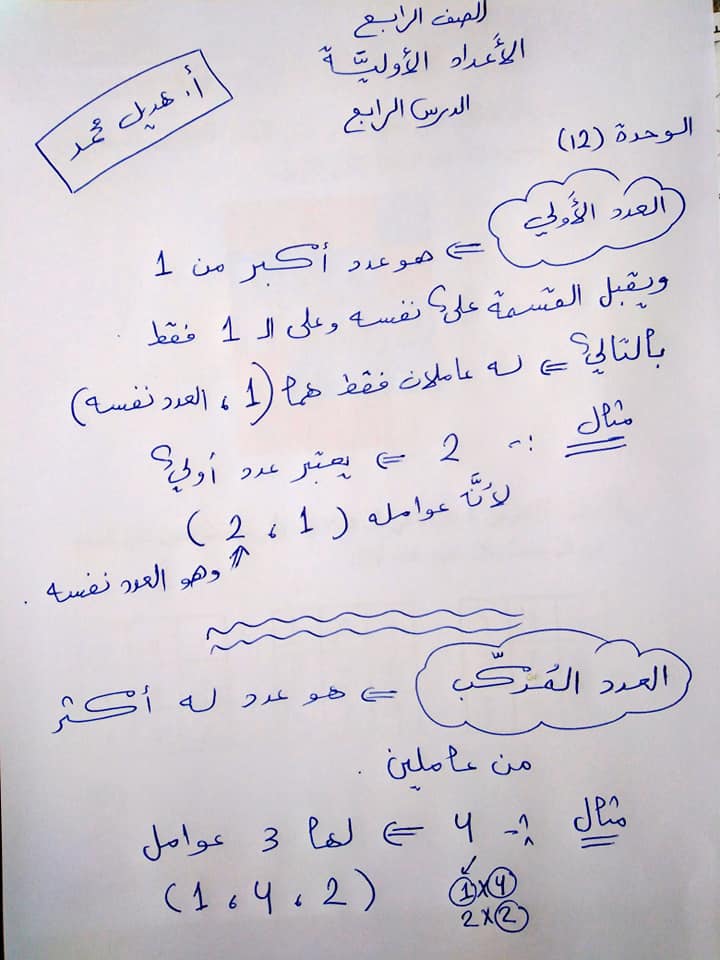 الصف الرابع
الأعداد الأوليَّة
الدرس الرابع
أ. هديل محمد
الوحدة (12)
العدد الأَولي ⇐ هو عدد أكبر من 1
ويقبل القسمة على نفسه وعلى الـ 1 فقط .
بالتالي ⇐ له عاملان فقط هما (1 ، العدد نفسه)
مثال :- 2 ⇐ يعتبر عدد أولي
لأنَّ عوامله (1 ، 2)
وهو العدد نفسه .
العدد المُركّب ⇐ هو عدد له أكثر
من عاملين .
مثال :- 4 ⇐ لها 3 عوامل
(1 ، 4 ، 2)
1×4
2×2